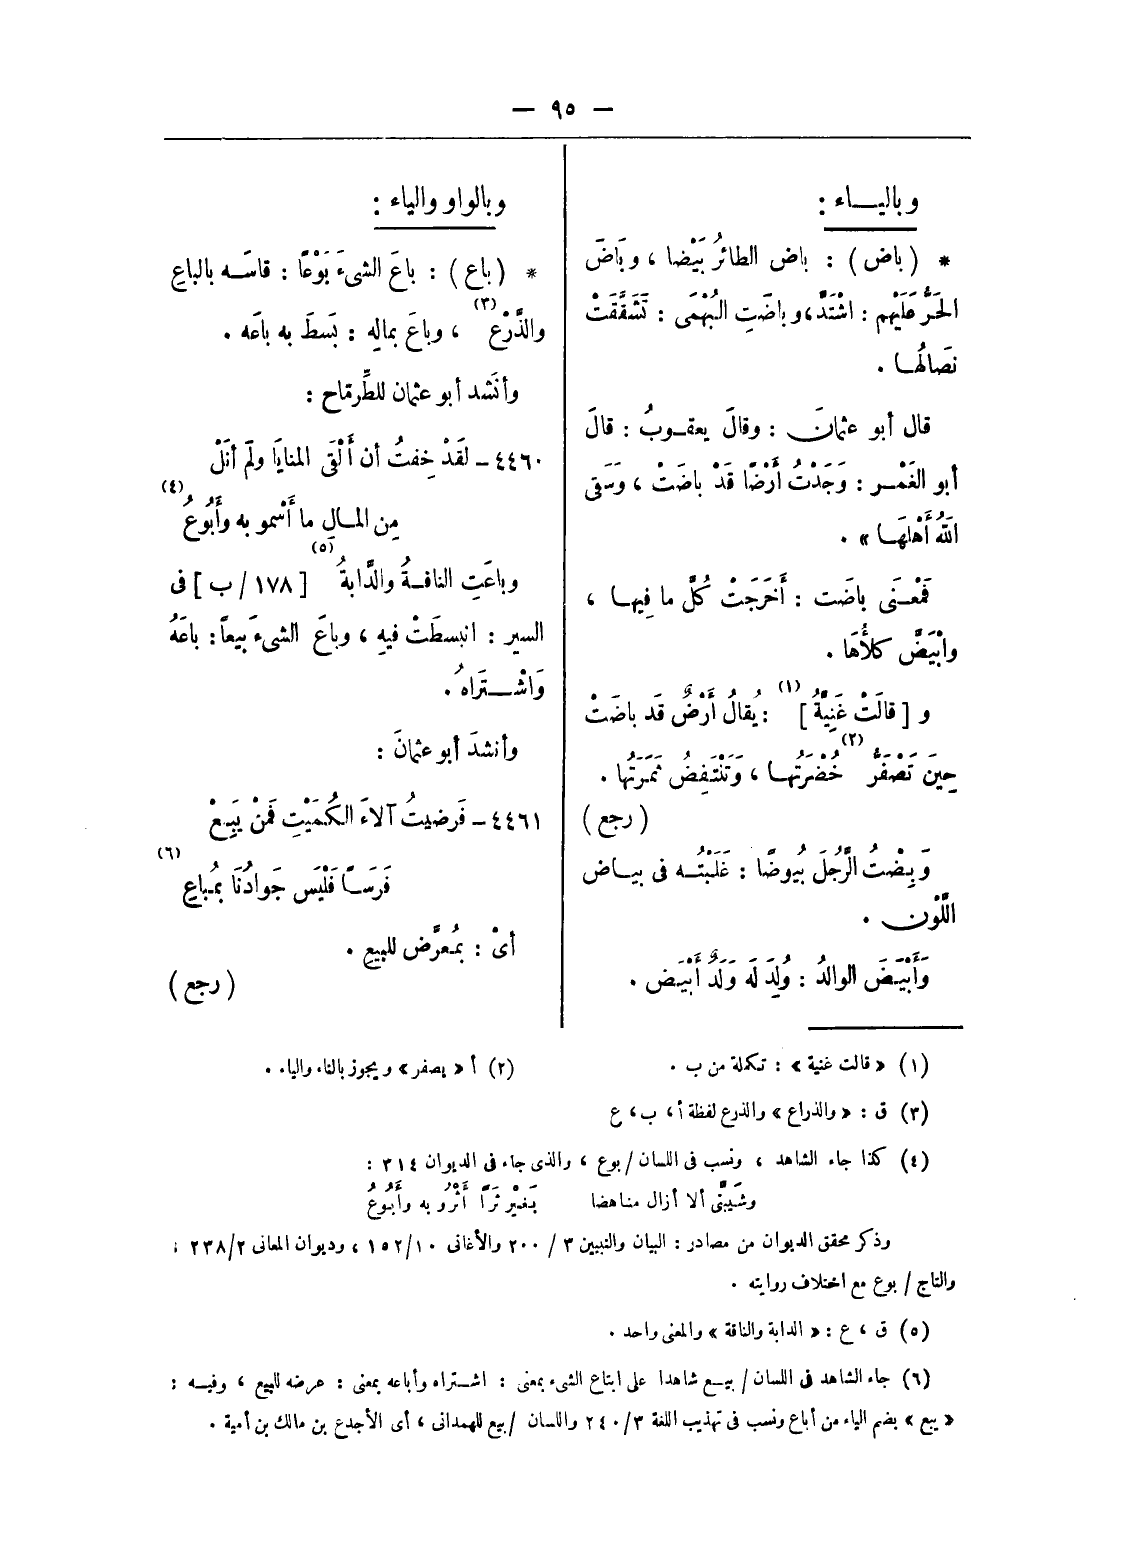 — ٩٥ —
وباليـــاء :
* (باض) : باض الطائرُ بَيْضا ، وبَاضَ
الحَرُّ عَلَيْهِم : اشْتَدَّ، وباضَتِ البُهْمَى : تَشَقَّقَتْ
نصَالُهـا .
قال أبو عثمانَ : وقالَ يعقـوبُ : قالَ
أبو الغَمْـر : وَجَدْتُ أَرْضًا قَدْ باضَتْ ، وَسَقى
اللهُ أَهْلَهَـا » .
فَمْعـنَى باضَت : أَخرَجَتْ كُلَّ ما فِيهـا ،
وابْيَضَّ كلأُهَا .
و [ قالَتْ غَنِيَّةُ ] (١) : يُقالُ أَرْضٌ قَد باضَتْ
حِينَ تَصْفَرُّ (٢) خُضْرَتُهـا ، وَتَنْتَفِضُ ثَمَرَتُها .
( رجع )
وَبِضْتُ الرَّجُلَ بُيوضًا : غَلَبْتُـه فى بيـاض
اللَّوْن .
وَأَبيَـضَ الوالدُ : وُلِدَ لَه وَلَدٌ أَبْيَـض .
وبالواو والياء :
* (باع) : باعَ الشىءَ بَوْعًا : قاسَـه بالباعِ
والذَّرْع (٣) ، وباعَ بمالِهِ : بَسطَ به باعَه .
وأنشَد أبو عثمان للطِّرمّاح :
٤٤٦٠ ــ لقَدْ خِفتُ أن أَلْقى المنايَا ولَم أَنَلْ
مِن المـالِ ما أَسْمو به وأَبُوعُ (٤)
وباعَتِ الناقـةُ والدَّابةُ (٥) [ ١٧٨ / ب ] فى
السير : انبسطَتْ فيهِ ، وباعَ الشىءَ بَيعاً : باعَهُ
وَاشْـتَراهُ .
وأنشدَ أبو عثمانَ :
٤٤٦١ ــ فَرضيتُ آلاءَ الكُمَيْتِ فَمنْ يَبِعْ
فَرَسـًا فَلَيْسَ جَوادُنَا بمُباعِ (٦)
أىْ : بمُعرَّض للبيعِ .
( رجع )
(١) « قالت غنية » : تكملة من ب .
(٢) أ « يصفر » ويجوز بالتاء والياء .
(٣) ق : « والذراع » والذرع لفظة أ ، ب ، ع
(٤) كذا جاء الشاهد ، ونسب فى اللسان / بوع ، والذى جاء فى الديوان ٣١٤ :
وشَيبَّنى ألا أزال مناهضا بَغيْرِ ثَرًا أَثْرُو به وأَبُوعُ
وذكر محقق الديوان من مصادر : البيان والتبيين ٣ / ٢٠٠ والأغانى ١٥٢/١٠ ، وديوان المعانى ٢٣٨/٢ ؛
والتاج / بوع مع اختلاف روايته .
(٥) ق ، ع : « الدابة والناقة » والمعنى واحد .
(٦) جاء الشاهد فى اللسان / بيـع شاهدا على ابتاع الشىء بمعنى : اشـتراه وأباعه بمعنى : عرضه للبيع ، وفيـه :
« يبع » بضم الياء من أباع ونسب فى تهذيب اللغة ٢٤٠/٣ واللسان / بيع للهمدانى ، أى الأجدع بن مالك بن أمية .